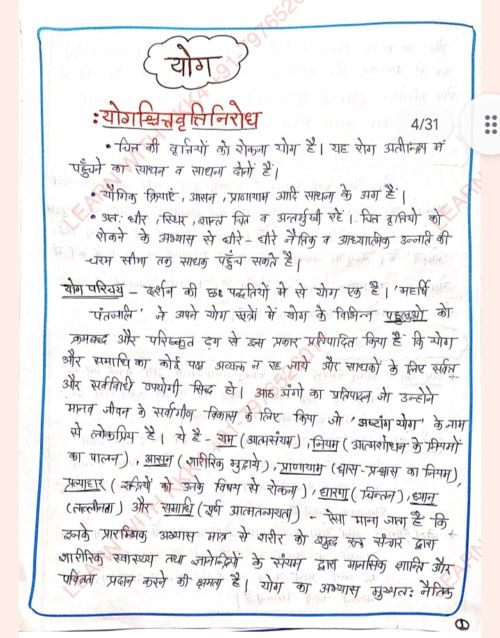 योग
:योगश्चित्तवृत्तिनिरोध
4/31
• चित्त की वृत्तियों को रोकना योग है। यह रोग अतीन्द्रिय में
पहुँचने का साधन व साधना दोनों हैं।
• यौगिक क्रियाएं, आसन, प्राणायाम आदि साधना के अंग हैं।
• अतः धीर, स्थिर, शान्त चित्त व अन्तर्मुखी रहें। चित्त वृत्तियों को
रोकने के अभ्यास से धीरे-धीरे नैतिक व आध्यात्मिक उन्नति की
चरम सीमा तक साधक पहुँच सकते हैं।
योग परिचय - दर्शन की छः पद्धतियों में से योग एक है। 'महर्षि
पंतजलि' ने अपने योग सूत्रों में योग के विभिन्न पहलुओं को
क्रमबद्ध और परिष्कृत ढंग से इस प्रकार प्रतिपादित किया है कि योग
और समाधि का कोई पक्ष अव्यक्त न रह जाये और साधकों के लिए सर्वत्र
और सर्वविधी उपयोगी सिद्ध हो। आठ अंगों का प्रतिपादन जो उन्होंने
मानव जीवन के सर्वांगीण विकास के लिए किया जो 'अष्टांग योग' के नाम
से लोकप्रिय है। ये है - यम (आत्मसंयम), नियम (आत्मशोधन के नियमों
का पालन), आसन (शारीरिक मुद्राये), प्राणायाम (श्वास-प्रश्वास का नियम),
प्रत्याहार (इन्द्रियों को उनके विषय से रोकना), धारणा (चिन्तन), ध्यान
(तल्लीनता) और समाधि (पूर्ण आत्मतन्मयता) - ऐसा माना जाता है कि
इनके प्रारम्भिक अभ्यास मात्र से शरीर को शुद्ध रक्त संचार द्वारा
शारीरिक स्वास्थ्य तथा ज्ञानेन्द्रियों के संयम द्वारा मानसिक शान्ति और
पवित्रता प्रदान करने की क्षमता है। योग का अभ्यास मुख्यतः नैतिक
1